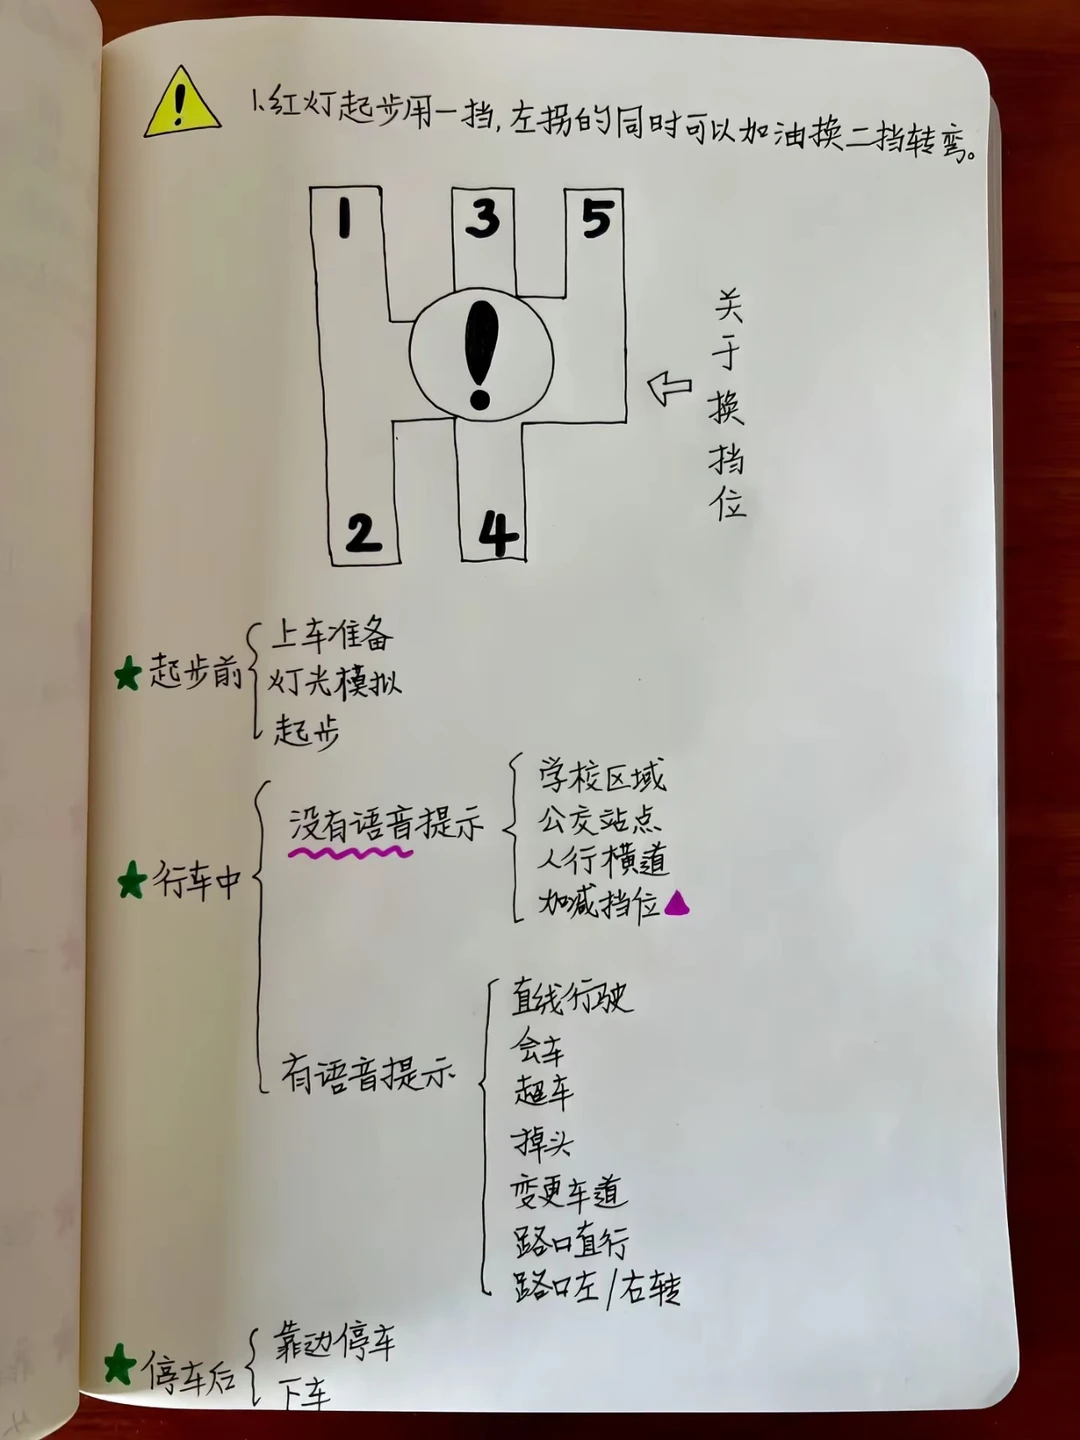 !
1.红灯起步用一挡,左拐的同时可以加油换二挡转弯。
1 3 5
!
2 4
关于换挡位
起步前
上车准备
灯光模拟
起步
行车中
没有语音提示
学校区域
公交站点
人行横道
加减挡位
有语音提示
直线行驶
会车
超车
掉头
变更车道
路口直行
路口左/右转
停车后
靠边停车
下车